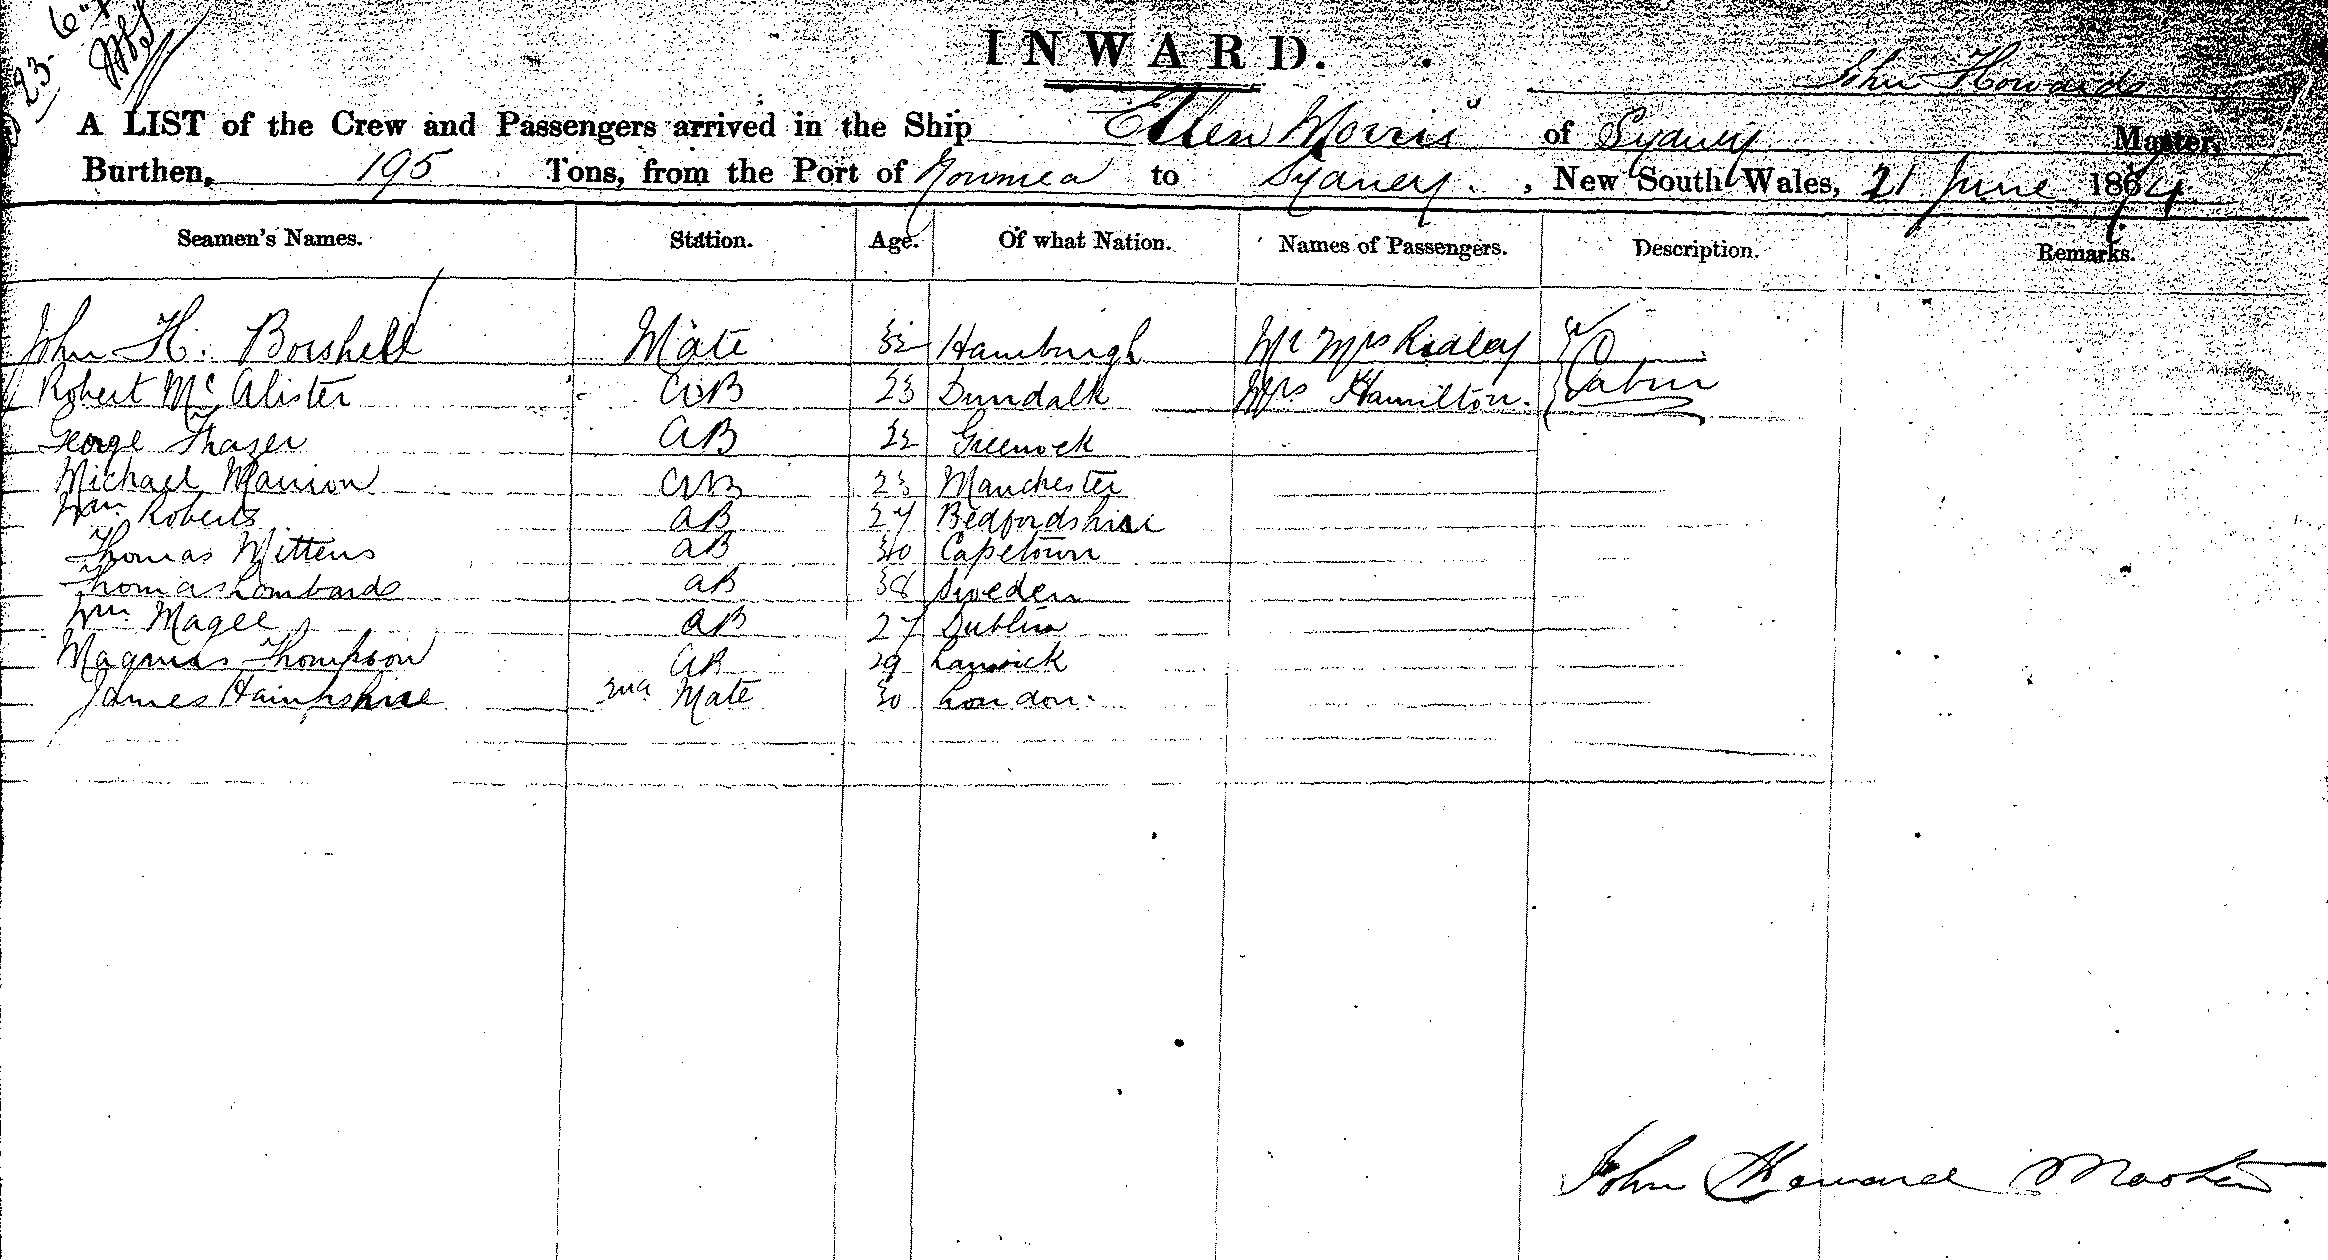 23. 6.
INWARD.
John Howards
A LIST of the Crew and Passengers arrived in the Ship Ellen Morris of Sydney Master,
Burthen, 195 Tons, from the Port of Noumea to Sydney. , New South Wales, 21 June 1874
Seamen's Names. Station. Age. Of what Nation. Names of Passengers. Description. Remarks.
John H. Borshell Mate 32 Hamburgh Mr Mrs Ridley
Robert Mc Alister AB 23 Dundalk Mrs Hamilton. Cabin
George Frazer AB 32 Greenock
Michael Manion AB 23 Manchester
Wm Roberts AB 27 Bedfordshire
Thomas Mittens AB 30 Capetown
Thomas Lombard AB 38 Sweden
Wm Magee AB 27 Dublin
Magnus Thompson AB 29 Larwick
James Hampshire 2nd Mate 30 London.
John Howard Master